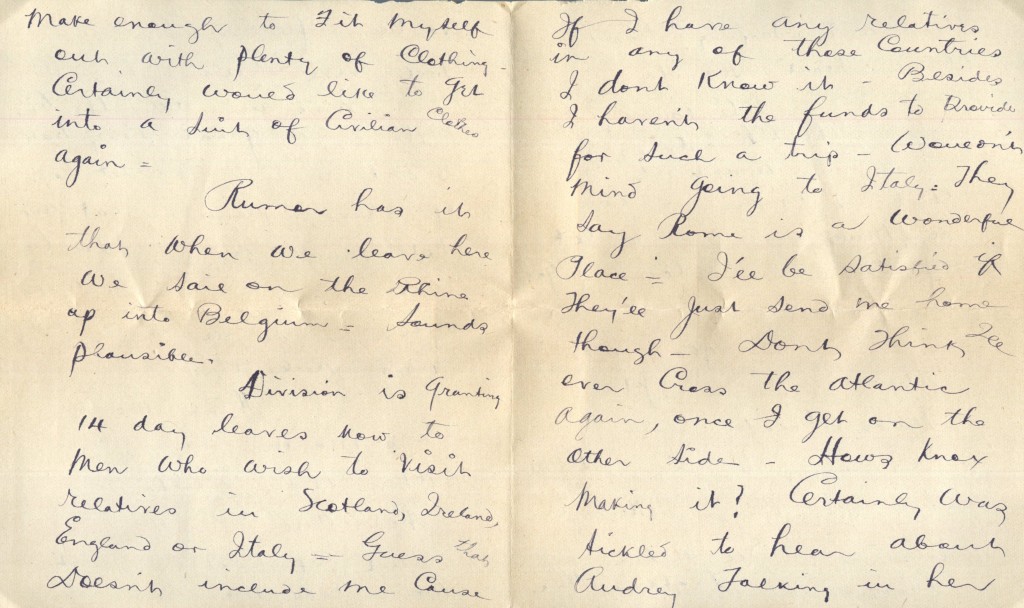 Make enough to Fit Myself
out with plenty of Clothing -
Certainly would like to Get
into a Suit of Civilian Clothes
again =
Rumor has it
that when we leave here
we sail on the Rhine
up into Belgium = Sounds
plausible.
Division is granting
14 day leaves now to
Men who wish to Visit
relatives in Scotland, Ireland,
England or Italy = Guess that
Doesn't include me Cause
If I have any relatives
in any of these Countries
I dont Know it - Besides
I haven't the funds to Provide
for such a trip - Wouldn't
Mind going to Italy = They
Say Rome is a Wonderful
Place = I'll be Satisfied if
They'll Just Send me home
though - Dont Think I'll
ever Cross the Atlantic
Again, once I get on the
Other Side - Hows Knox
Making it? Certainly Was
tickled to hear about
Audrey Talking in her